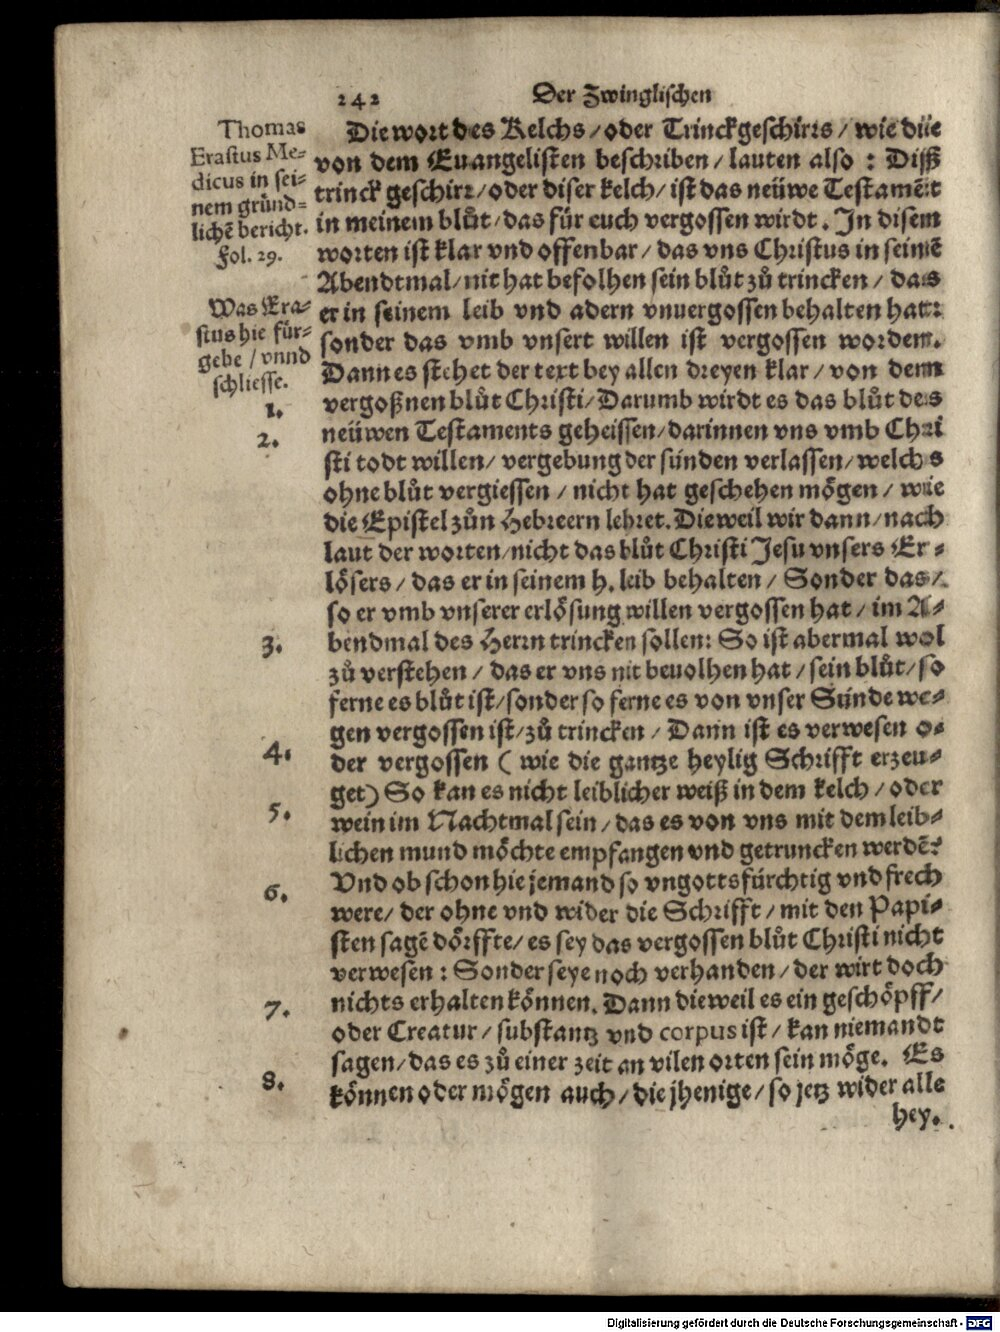 242 Der Zwinglischen
Thomas
Erastus Me-
dicus in sei-
nem gründ-
lichẽ bericht.
Fol. 29.
Was Era-
stus hie für-
gebe / vnnd
schliesse.
1.
2.
3.
4.
5.
6.
7.
8.
Die wort des Kelchs / oder Trinckgeschirrs / wie die
von dem Euangelisten beschriben / lauten also : Diß
trinck geschirr / oder diser kelch / ist das neüwe Testamẽt
in meinem blůt / das für euch vergossen wirdt. In disem
worten ist klar vnd offenbar / das vns Christus in seinẽ
Abendtmal / nit hat befolhen sein blůt zů trincken / das
er in seinem leib vnd adern vnuergossen behalten hat:
sonder das vmb vnsert willen ist vergossen worden.
Dann es stehet der text bey allen dreyen klar / von dem
vergoßnen blůt Christi / Darumb wirdt es das blůt des
neüwen Testaments geheissen / darinnen vns vmb Chri
sti todt willen / vergebung der sünden verlassen / welchs
ohne blůt vergiessen / nicht hat geschehen mögen / wie
die Epistel zůn Hebreern lehret. Dieweil wir dann / nach
laut der worten / nicht das blůt Christi Jesu vnsers Er-
lösers / das er in seinem h. leib behalten / Sonder das /
so er vmb vnserer erlösung willen vergossen hat / im A-
bendmal des Herrn trincken sollen: So ist abermal wol
zů verstehen / das er vns nit beuolhen hat / sein blůt / so
ferne es blůt ist / sonder so ferne es von vnser Sünde we-
gen vergossen ist / zů trincken / Dann ist es verwesen o-
der vergossen ( wie die gantze heylig Schrifft erzeu-
get) So kan es nicht leiblicher weiß in dem kelch / oder
wein im Nachtmal sein / das es von vns mit dem leib-
lichen mund möchte empfangen vnd getruncken werdẽ:
Vnd ob schon hie jemand so vngottsfürchtig vnd frech
were / der ohne vnd wider die Schrifft / mit den Papi-
sten sagẽ dörffte / es sey das vergossen blůt Christi nicht
verwesen : Sonder seye noch verhanden / der wirt doch
nichts erhalten können. Dann dieweil es ein geschöpff /
oder Creatur / substantz vnd corpus ist / kan niemandt
sagen / das es zů einer zeit an vilen orten sein möge. Es
können oder mögen auch / die jhenige / so jetz wider alle
hey.
Digitalisierung gefördert durch die Deutsche Forschungsgemeinschaft - DFG